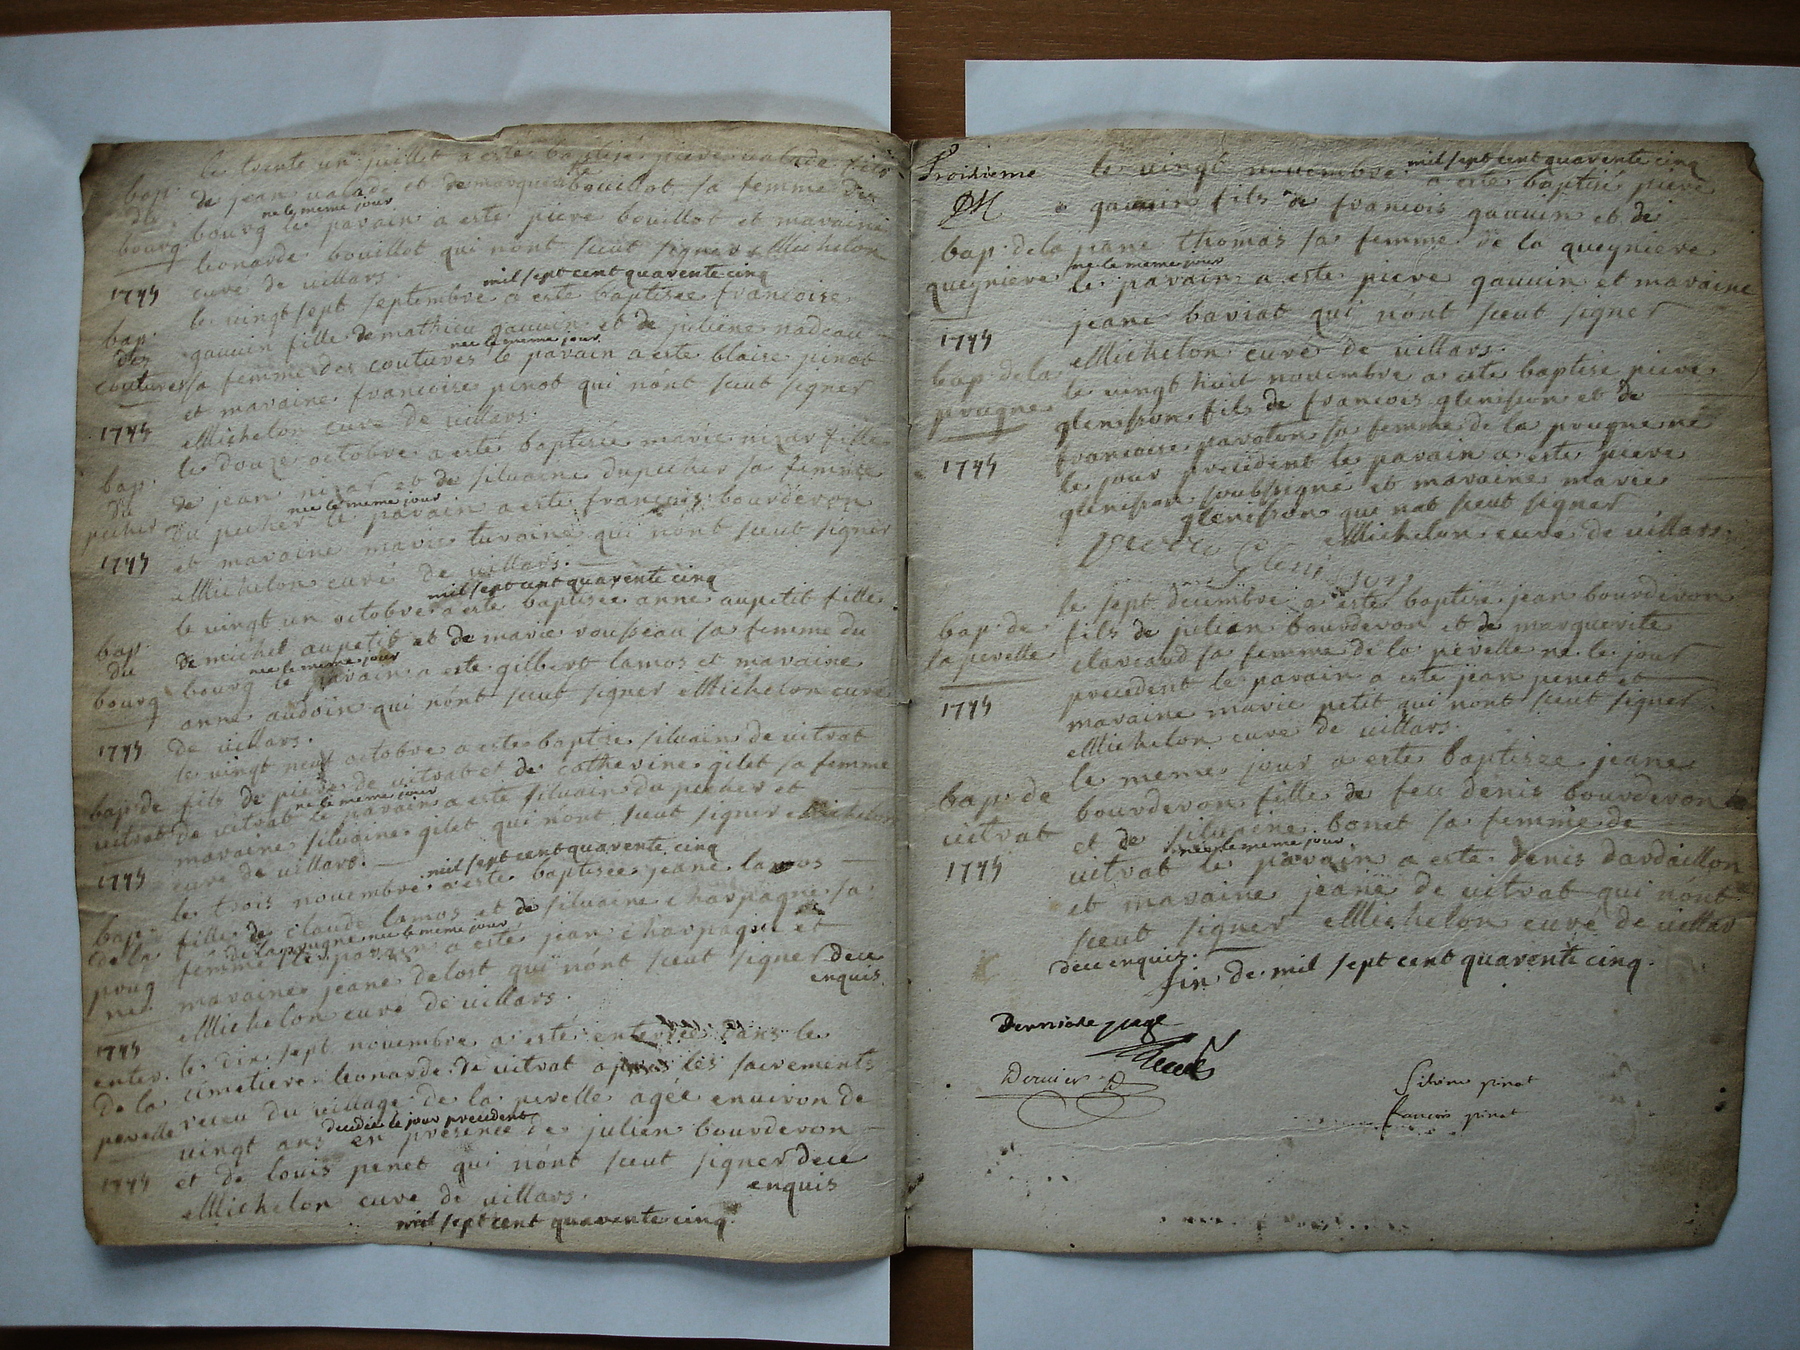 le trente un juillet a este baptisé piere valade fils
bap. de jean valade et de marguerite bouillot sa femme du
du né le meme jour
bourg bourg le parain a este piere bouillot et maraine
leonarde bouillot qui nónt sceut signer Michelon
1745 curé de villars.
mil sept cent quarente cinq
le vingt sept septembre a este baptisée francoise
bap. gauuin fille de mathieu gauuin et de juliene nadeau
des née le meme jour
coutures sa femme des coutures le parain a este blaise pinot
et maraine francoise pinot qui nónt sceut signer
1745 Michelon curé de villars.
le douze octobre a este baptisée marie nizar fille
bap. de jean nizar et de siluaine dupecher sa femme
du née le meme jour
pecher du pecher le parain a este francois bourderon
et maraine marie turaine qui nónt sceut signer
1745 Michelon curé de villars.
mil sept cent quarente cinq
le vingt un octobre a este baptisée anne aupetit fille
bap. de michel aupetit et de marie rousseau sa femme du
du née le meme jour
bourg bourg le parain a este gilbert lamos et maraine
anne audoin qui nónt sceut signer Michelon curé
1745 de villars.
le vingt neuf octobre a este baptisé siluain de vitrat
bap. de fils de piere de vitrat et de catherine gilet sa femme
né le meme jour
vitrat de vitrat le parain a este siluain du pecher et
maraine siluaine gilet qui nónt sceut signer Michelon
1745 curé de villars.
mil sept cent quarente cinq
le trois novembre a este baptisée jeane lamos
bap. fille de claude lamos et de siluaine charpagne sa
de la prugne née le meme jour
de la femme le parain a este jean charpagne et
prug maraine jeane delost qui nónt sceut signer dece
ne enquis.
Michelon curé de villars.
1745
le dix sept novembre a esté enterrée dans le
enter. cimetiere leonarde de vitrat apres les sacrements
de la receu du village de la perelle agée environ de
decedée le jour precedent
perelle vingt ans en presence de julien bourderon
1745 et de louis penet qui nónt sceut signer dece
enquis
Michelon curé de villars.
mil sept cent quarente cinq.
Troisieme
mil sept cent quarente cinq
le vingt novembre a este baptisé piere
gauuin fils de francois gauuin et de
bap. de la jeane thomas sa femme de la queyniere
né le meme jour
queyniere le parain a este piere gauuin et maraine
jeane bariat qui nónt sceut signer
1745 Michelon curé de villars.
bap. de la le vingt huit novembre a este baptisé piere
prugne glenisson fils de francois glenisson et de
francoise paroton sa femme de la prugne né
1745 le jour precedent le parain a este piere
glenisson soubsigné et maraine marie
glenisson qui nat sceut signer
Michelon curé de villars.
pierre Glenisson
le sept decembre a este baptisé jean bourderon
bap. de fils de julien bourderon et de marguerite
la perelle claveaud sa femme de la perelle né le jour
precedent le parain a este jean penet et
1745 maraine marie petit qui nont sceut signer
Michelon curé de villars.
le meme jour a este baptisee jeane
bap. de bourderon fille de feu denis bourderon
vitrat et de siluaine bonet sa femme de
née le meme jour
1745 vitrat le parain a este denis dardaillon
et maraine jeane de vitrat qui nont
sceut signer Michelon curé de villar
dece enquis.
fin de mil sept cent quarente cinq.
Derniere page
Dernier
Silvine pinot
francois pinot